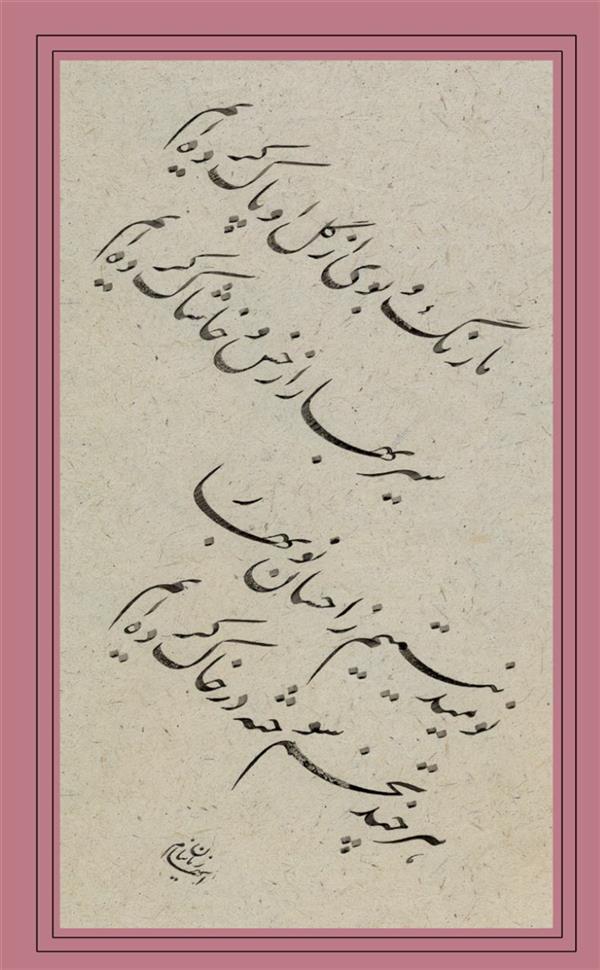 ما رنگ و بوی از گل او پاک کرده ایم
سیر بهار از خس و خاشاک کرده ایم
نومید نیستیم ز احسان نوبهار
هر چند تخم سوخته در خاک کرده ایم